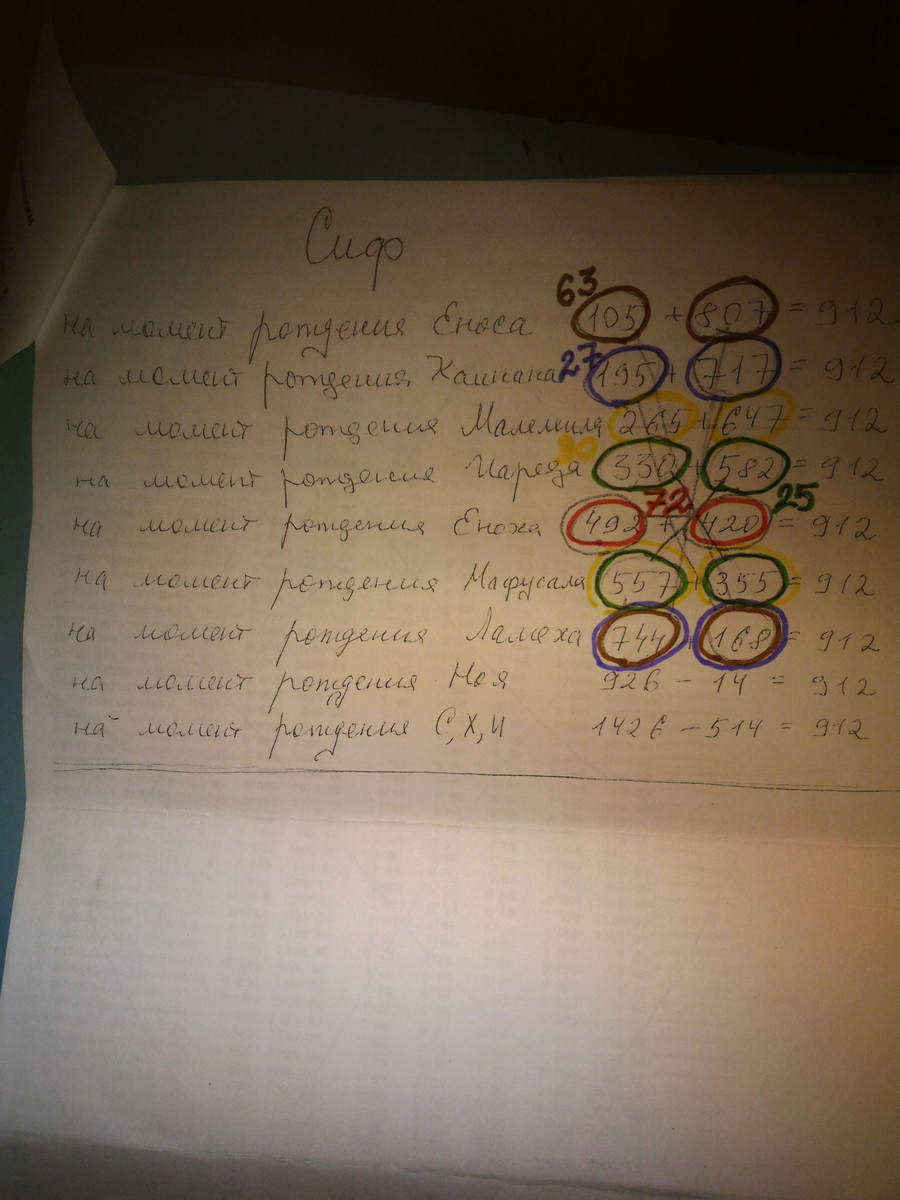 Сиф
63
на момент рождения Еноса 105 + 807 = 912
на момент рождения Каинана 27 195 + 717 = 912
на момент рождения Малелеила 265 + 647 = 912
90
на момент рождения Иареда 330 + 582 = 912
72 25
на момент рождения Еноха 492 + 420 = 912
на момент рождения Мафусала 557 + 355 = 912
на момент рождения Ламеха 744 + 168 = 912
на момент рождения Ноя 926 - 14 = 912
на момент рождения С, Х, И 1426 - 514 = 912